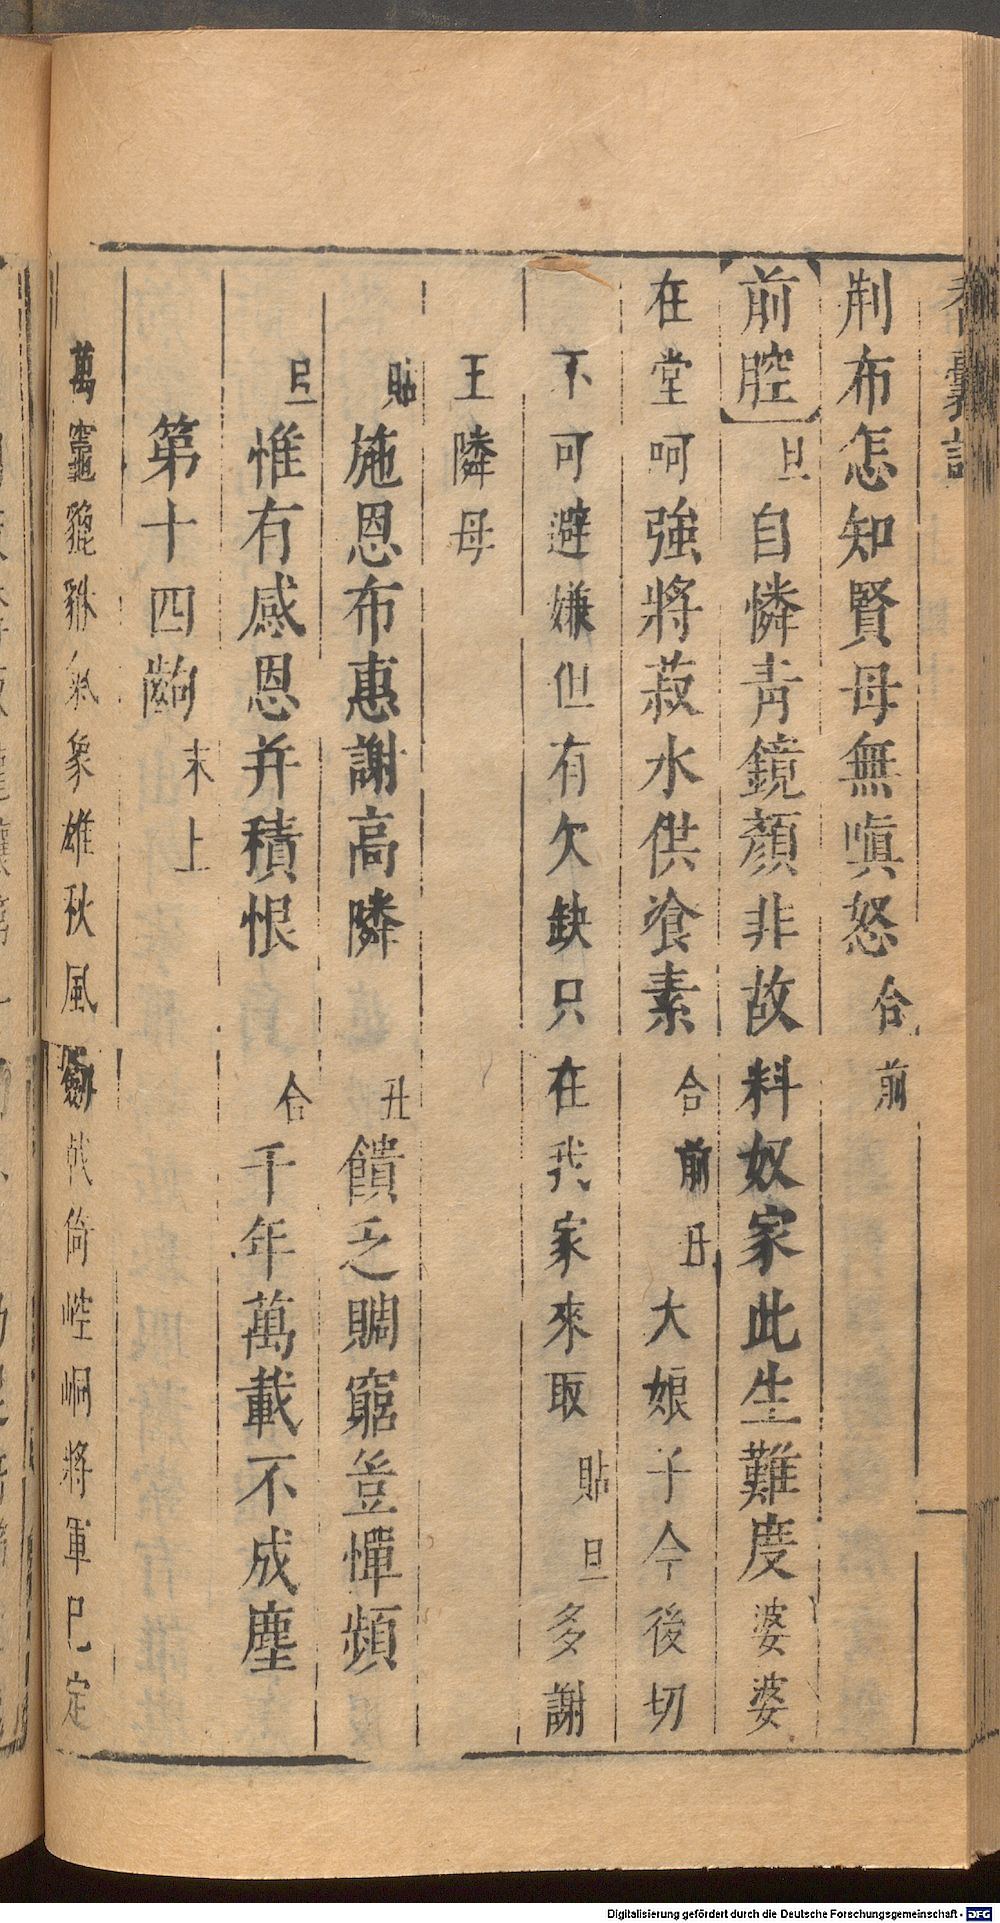 香囊記
荆布怎知賢母無嗔怒合前
【前腔】旦自憐青鏡顏非故料奴家此生難度婆婆
在堂呵強將菽水供飡素合前丑大娘子今後切
不可避嫌但有欠缺只在我家來取貼旦多謝
王隣母
貼施恩布惠謝高隣 丑饋乏賙窮豈憚頻
旦惟有感恩并積恨 合千年萬載不成塵
第十四齣末上
萬竈貔貅氣象雄秋風劍戟倚崆峒將軍已定
Digitalisierung gefördert durch die Deutsche Forschungsgemeinschaft - DFG